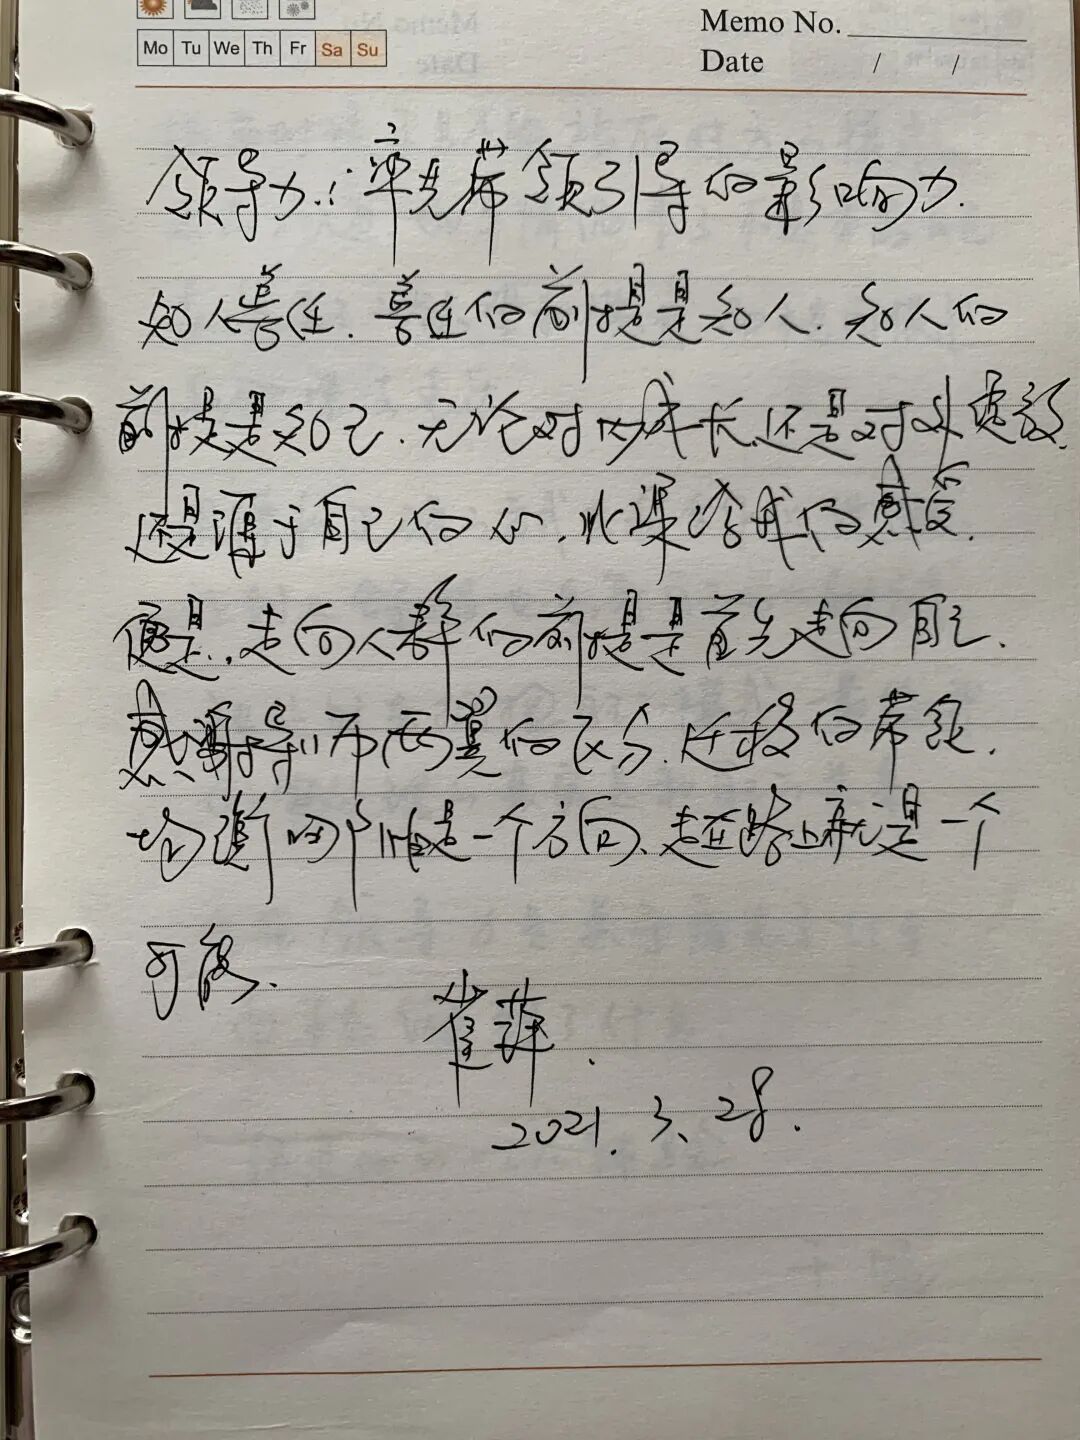 Mo Tu We Th Fr Sa Su
Memo No.
Date / /
领导力:率先带领引导的影响力.
知人善任.善任的前提是知人.知人的
前提是知己.无论对内成长还是对外建设.
还是源于自己的心.此课学成的感受.
便是.走向人群的前提是首先走向自己.
感谢导师两翼的区分.迁移的带领.
均衡 是一个方向、走在路上就是一个
可能.
崔萍.
2021.3.28.